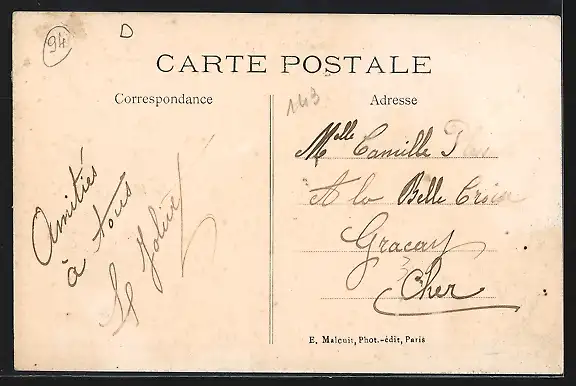 94
D
CARTE POSTALE
Correspondance
Adresse
143
Amitiés
à tous
Mlle Camille
A la Belle Croix
Gracay
Cher
E. Malcuit, Phot.-édit, Paris